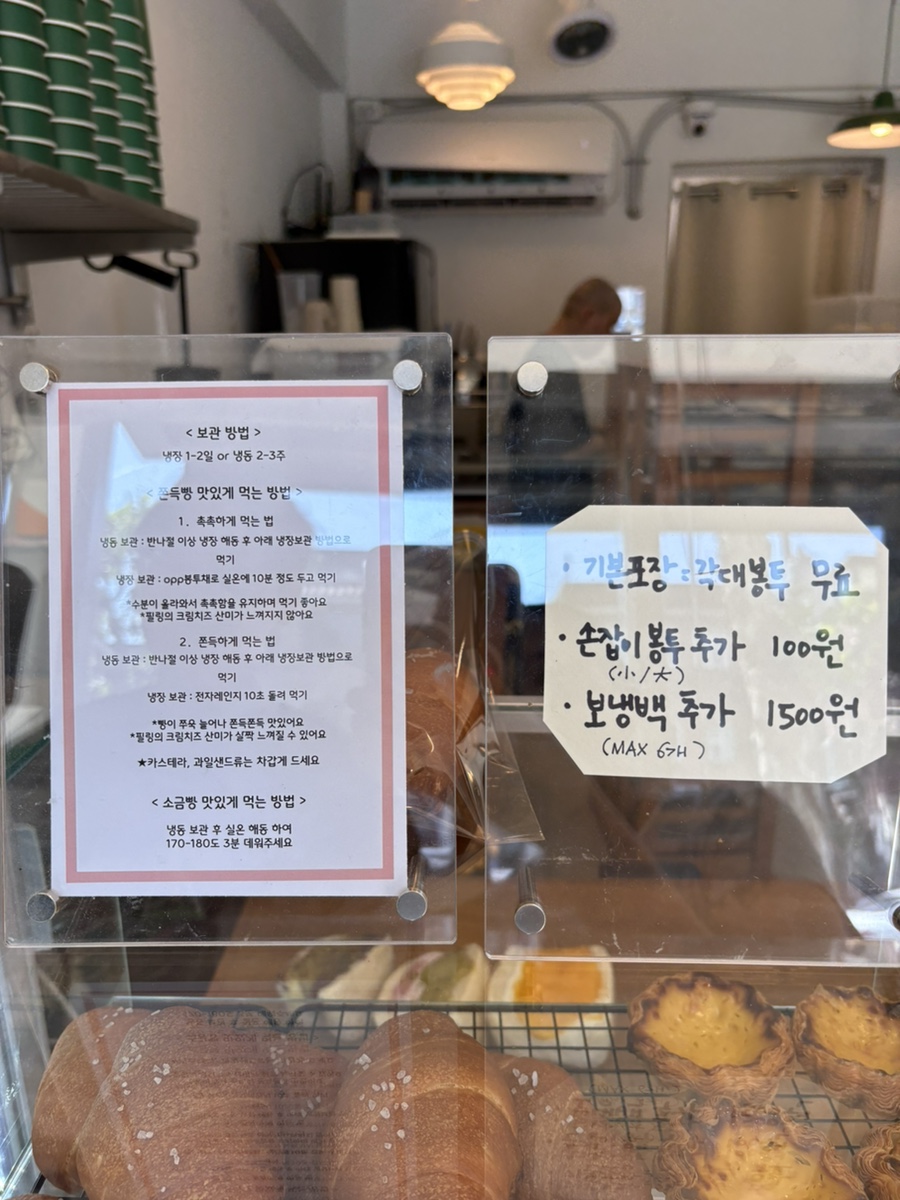 < 보관 방법 >
냉장 1-2일 or 냉동 2-3주
< 쫀득빵 맛있게 먹는 방법 >
1. 촉촉하게 먹는 법
냉동 보관 : 반나절 이상 냉장 해동 후 아래 냉장보관 방법으로
먹기
냉장 보관 : opp봉투채로 실온에 10분 정도 두고 먹기
*수분이 올라와서 촉촉함을 유지하며 먹기 좋아요
*필링의 크림치즈 산미가 느껴지지 않아요
2. 쫀득하게 먹는 법
냉동 보관 : 반나절 이상 냉장 해동 후 아래 냉장보관 방법으로
먹기
냉장 보관 : 전자레인지 10초 돌려 먹기
*빵이 쭈욱 늘어나 쫀득쫀득 맛있어요
*필링의 크림치즈 산미가 살짝 느껴질 수 있어요
★카스테라, 과일샌드류는 차갑게 드세요
< 소금빵 맛있게 먹는 방법 >
냉동 보관 후 실온 해동 하여
170-180도 3분 데워주세요
· 기본포장 : 각대봉투 무료
· 손잡이봉투 추가 100원
(小/大)
· 보냉백 추가 1500원
(MAX 6구H)